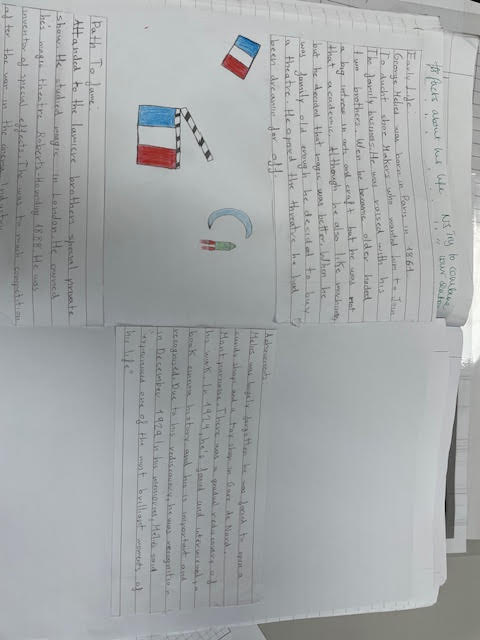 # Facts about his life
NS: Try to combine your
Early Life
George Melies was born in Paris in 1861
To ducht shoe Makers who wanted him to Join
The family business. He was raised with his
two brothers. Wen he became older haded
a big intrest in arts and craft but he was not
that academic. Although he also like
but he decided that magic was better. When he
was finally old enough he decided to buy
a theatre. He opened the threatre he had
been dreamin for off.
Path To fame:
Attanded to the lumiere brothers special private
show. He studied magic in London. He owened
he's magic theatre Roberts-Hounding 1888. He was
inventor of special effects. The was to much competition
after the war in the cinema Industry
Achievement:
Melies was largely forgotten he was forced to open a
candy shop and a toy shop in Gare de Nord,
Mont parnasse. There was a gradual rediscovery of
his work. In 1924, he's found and interviewed, a
book cinema history and his is important and
recognised. Due to his rediscovery, he was recognition
in December 1929. In his memories, Melies said
"experienced one of the most brilliant moments of
his life"